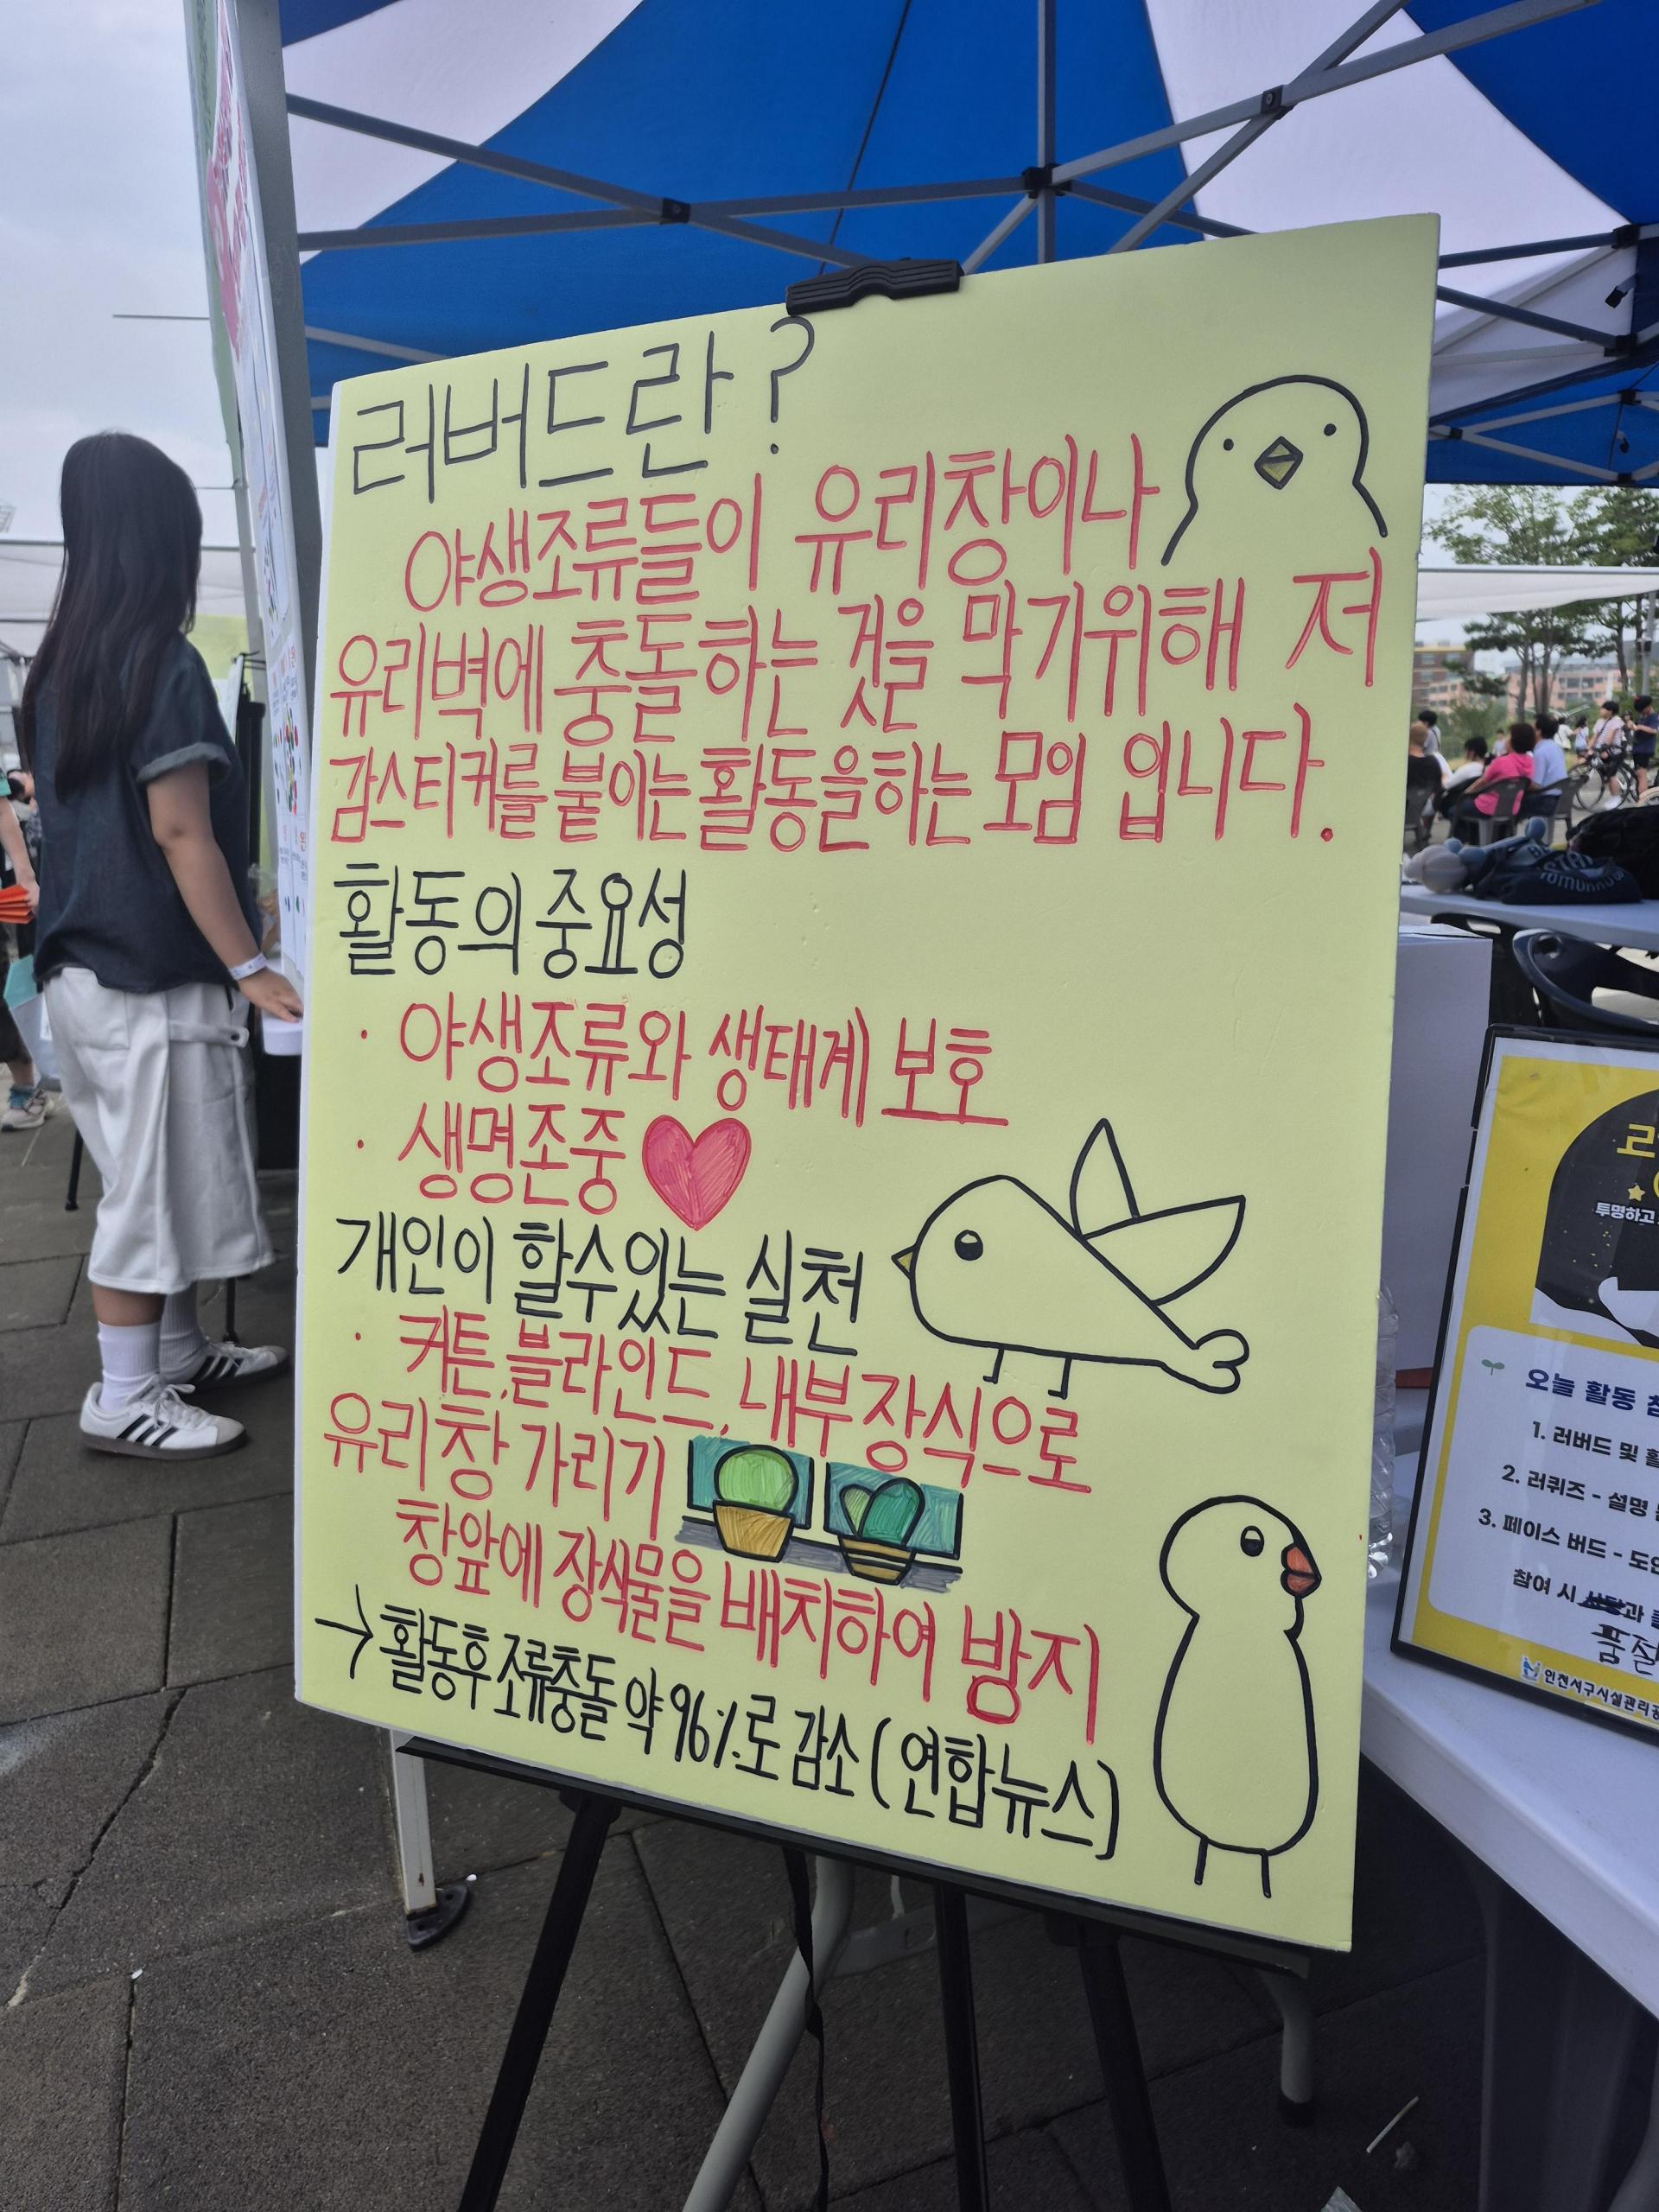 러버드란?
야생조류들이 유리창이나
유리벽에 충돌하는 것을 막기위해 저
감스티커를 붙이는 활동을하는 모임 입니다.
활동의 중요성
· 야생조류와 생태계 보호
· 생명존중
개인이 할수있는 실천
· 커튼, 블라인드, 내부장식으로
유리창 가리기
창앞에 장식물을 배치하여 방지
→ 활동후 조류충돌 약 96%로 감소 (연합뉴스)
투명하고
오늘 활동
1. 러버드 및 활
2. 러퀴즈 - 설명
3. 페이스 버드 - 도안
참여 시
품절
인천서구시설관리공